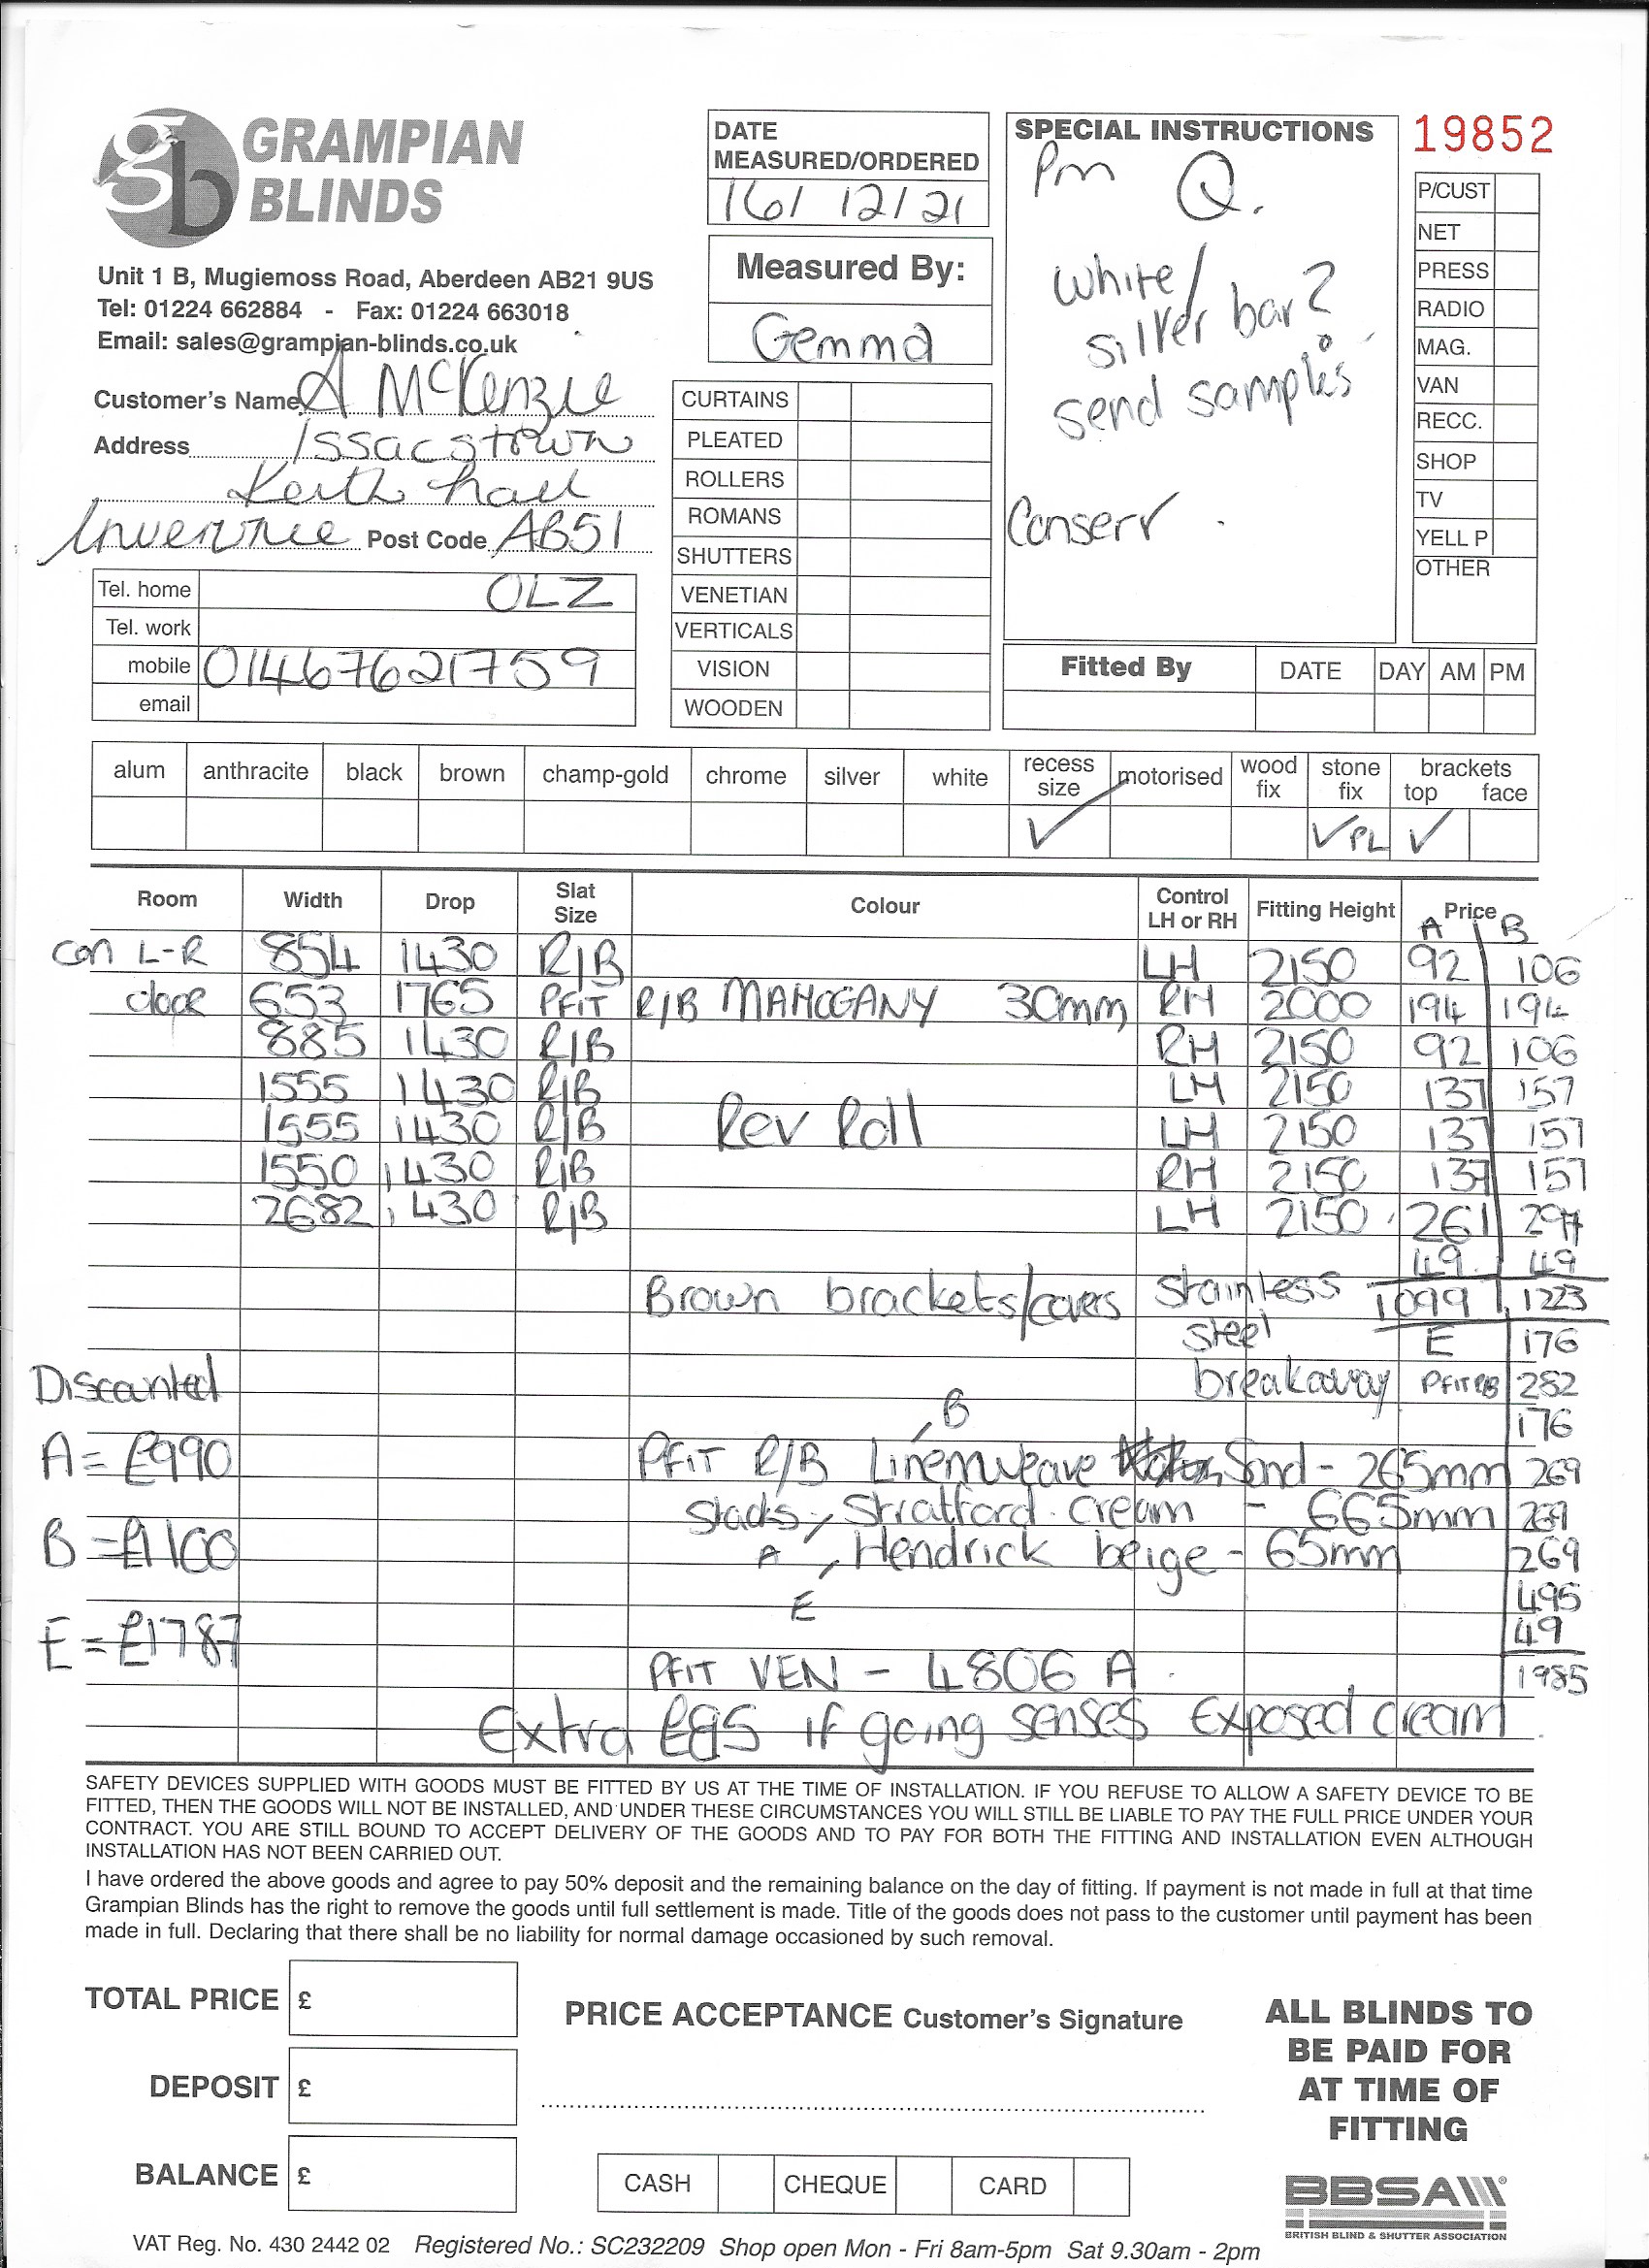 GRAMPIAN
BLINDS
Unit 1 B, Mugiemoss Road, Aberdeen AB21 9US
Tel: 01224 662884 - Fax: 01224 663018
Email: sales@grampian-blinds.co.uk
Customer's Name A McKenzie
Address Issacstown
Keith hall
Inverurie Post Code AB51
Tel. home OLZ
Tel. work
mobile 01467621759
email
DATE
MEASURED/ORDERED
16/12/21
Measured By:
Gemma
CURTAINS
PLEATED
ROLLERS
ROMANS
SHUTTERS
VENETIAN
VERTICALS
VISION
WOODEN
SPECIAL INSTRUCTIONS
Pm Q.
white/
silver bar?
send samples
Conserv
19852
P/CUST
NET
PRESS
RADIO
MAG.
VAN
RECC.
SHOP
TV
YELL P
OTHER
Fitted By DATE DAY AM PM
alum anthracite black brown champ-gold chrome silver white recess size motorised wood fix stone fix brackets top face
✓ ✓ PL ✓
Room Width Drop Slat Size Colour Control LH or RH Fitting Height Price A B
con L-R 854 1430 R/B LH 2150 92 106
door 653 1765 PFIT R/B MAHOGANY 30mm RH 2000 194 194
885 1430 R/B RH 2150 92 106
1555 1430 R/B LH 2150 137 157
1555 1430 R/B Rev Roll LH 2150 137 157
1550 1430 R/B RH 2150 137 157
2682 1430 R/B LH 2150 261 297
49 49
Brown brackets/covers stainless 1099 1223
steel E 176
Discounted breakaway PFIT R/B 282
B 176
A = £990 PFIT R/B Linenweave Sand - 265mm 269
Slacks, Stratford cream - 665mm 269
B = £1100 A, Hendrick beige - 65mm 269
E 495
E = £1787 49
PFIT VEN - 4806 A 1985
Extra £85 if going senses Exposed cream
SAFETY DEVICES SUPPLIED WITH GOODS MUST BE FITTED BY US AT THE TIME OF INSTALLATION. IF YOU REFUSE TO ALLOW A SAFETY DEVICE TO BE
FITTED, THEN THE GOODS WILL NOT BE INSTALLED, AND UNDER THESE CIRCUMSTANCES YOU WILL STILL BE LIABLE TO PAY THE FULL PRICE UNDER YOUR
CONTRACT. YOU ARE STILL BOUND TO ACCEPT DELIVERY OF THE GOODS AND TO PAY FOR BOTH THE FITTING AND INSTALLATION EVEN ALTHOUGH
INSTALLATION HAS NOT BEEN CARRIED OUT.
I have ordered the above goods and agree to pay 50% deposit and the remaining balance on the day of fitting. If payment is not made in full at that time
Grampian Blinds has the right to remove the goods until full settlement is made. Title of the goods does not pass to the customer until payment has been
made in full. Declaring that there shall be no liability for normal damage occasioned by such removal.
TOTAL PRICE £
DEPOSIT £
BALANCE £
PRICE ACCEPTANCE Customer's Signature
CASH CHEQUE CARD
ALL BLINDS TO
BE PAID FOR
AT TIME OF
FITTING
BBSA
BRITISH BLIND & SHUTTER ASSOCIATION
VAT Reg. No. 430 2442 02 Registered No.: SC232209 Shop open Mon - Fri 8am-5pm Sat 9.30am - 2pm